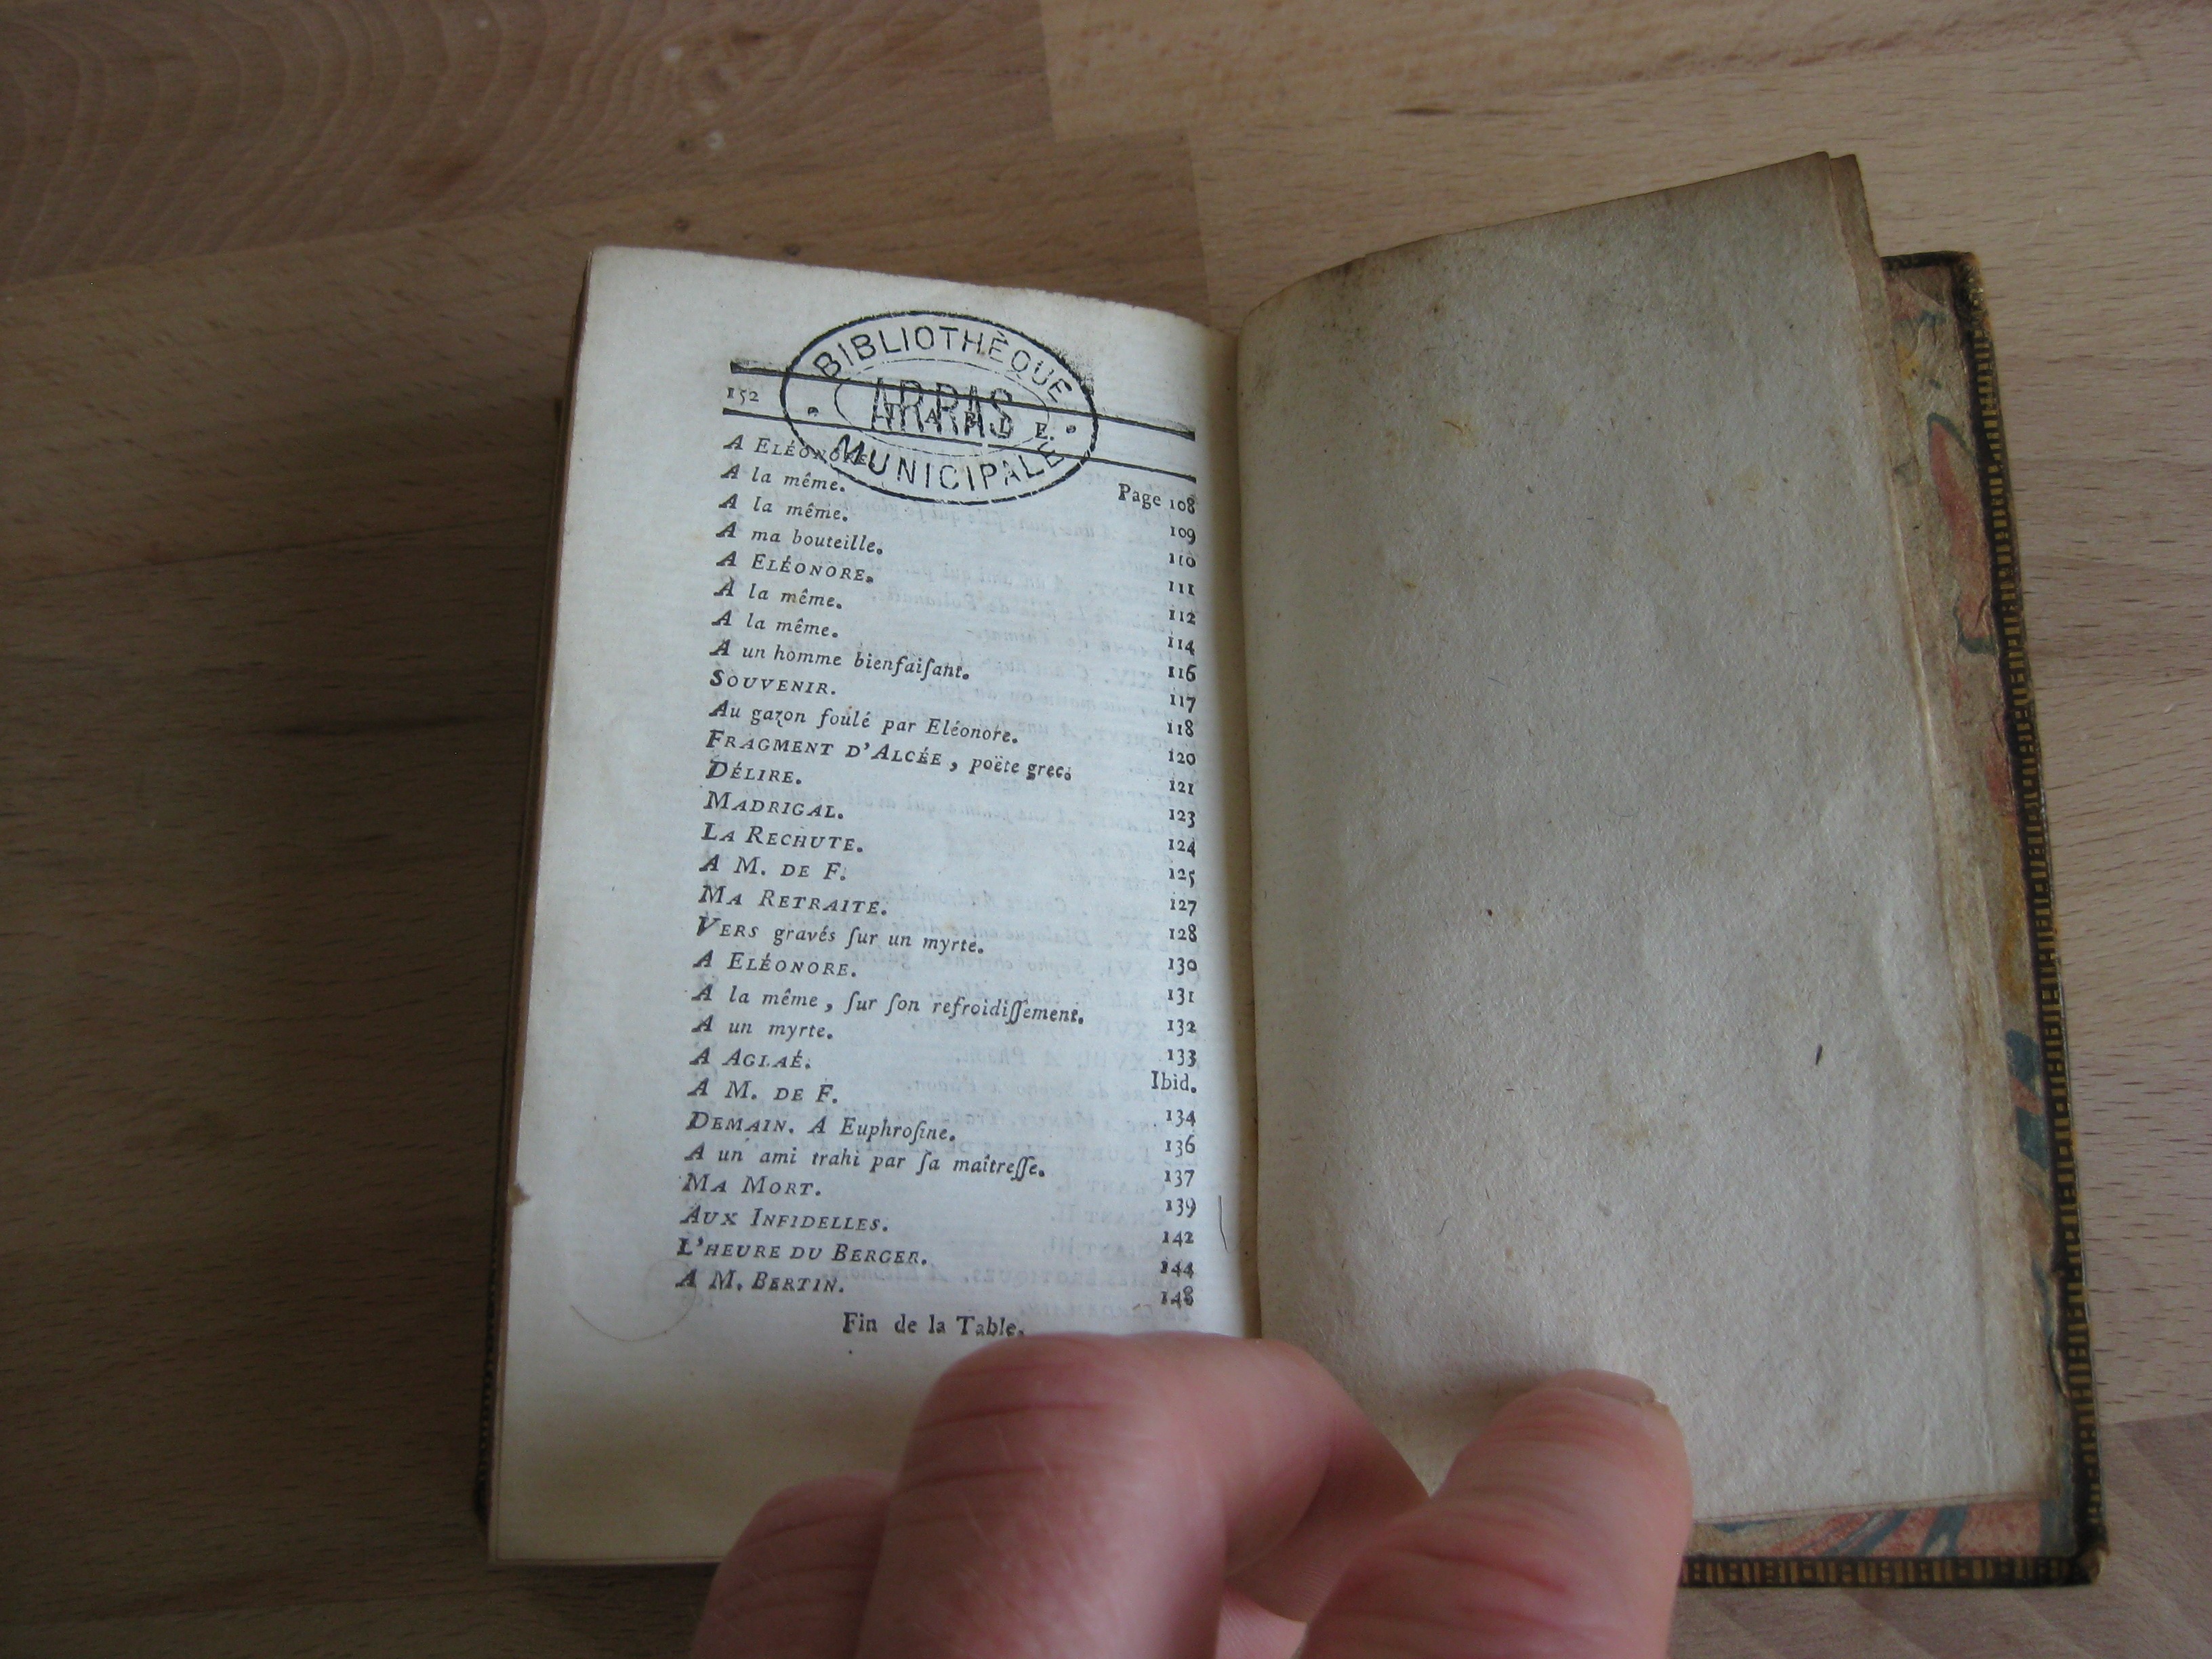 BIBLIOTHÈQUE
ARRAS
MUNICIPALE
152 TABLE.
A ELÉONORE. Page 108
A la même. 109
A la même. 110
A ma bouteille. 111
A ELÉONORE. 112
A la même. 114
A la même. 116
A un homme bienfaiſant. 117
SOUVENIR. 118
Au gazon foulé par Eléonore. 120
FRAGMENT D'ALCÉE, poëte grec. 121
DÉLIRE. 123
MADRIGAL. 124
LA RECHUTE. 125
A M. DE F. 127
MA RETRAITE. 128
VERS gravés ſur un myrte. 130
A ELÉONORE. 131
A la même, ſur ſon refroidiſſement. 132
A un myrte. 133
A AGLAÉ. Ibid.
A M. DE F. 134
DEMAIN. A Euphroſine. 136
A un ami trahi par ſa maîtreſſe. 137
MA MORT. 139
AUX INFIDELLES. 142
L'HEURE DU BERGER. 144
A M. BERTIN. 148
Fin de la Table.